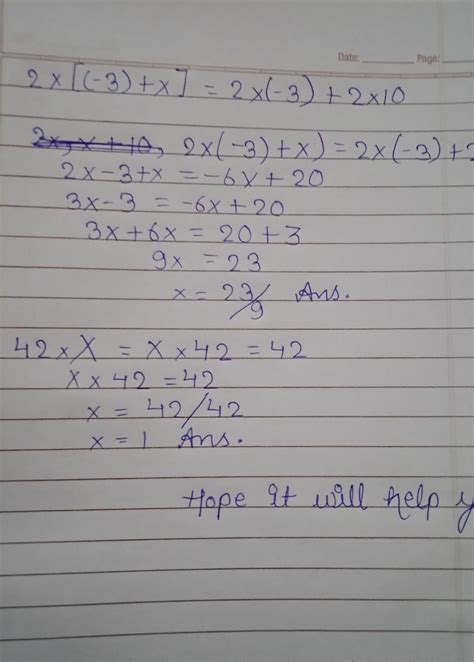 Date: ________ Page: ____
2x[(-3)+x] = 2x(-3) + 2x10
2x, x + 10, 2x(-3)+x) = 2x(-3)+2
2x-3+x = -6x+20
3x-3 = -6x+20
3x+6x = 20+3
9x = 23
x = 23/9 Ans.
42xX = X x 42 = 42
X x 42 = 42
x = 42/42
x = 1 Ans.
Hope it will help y